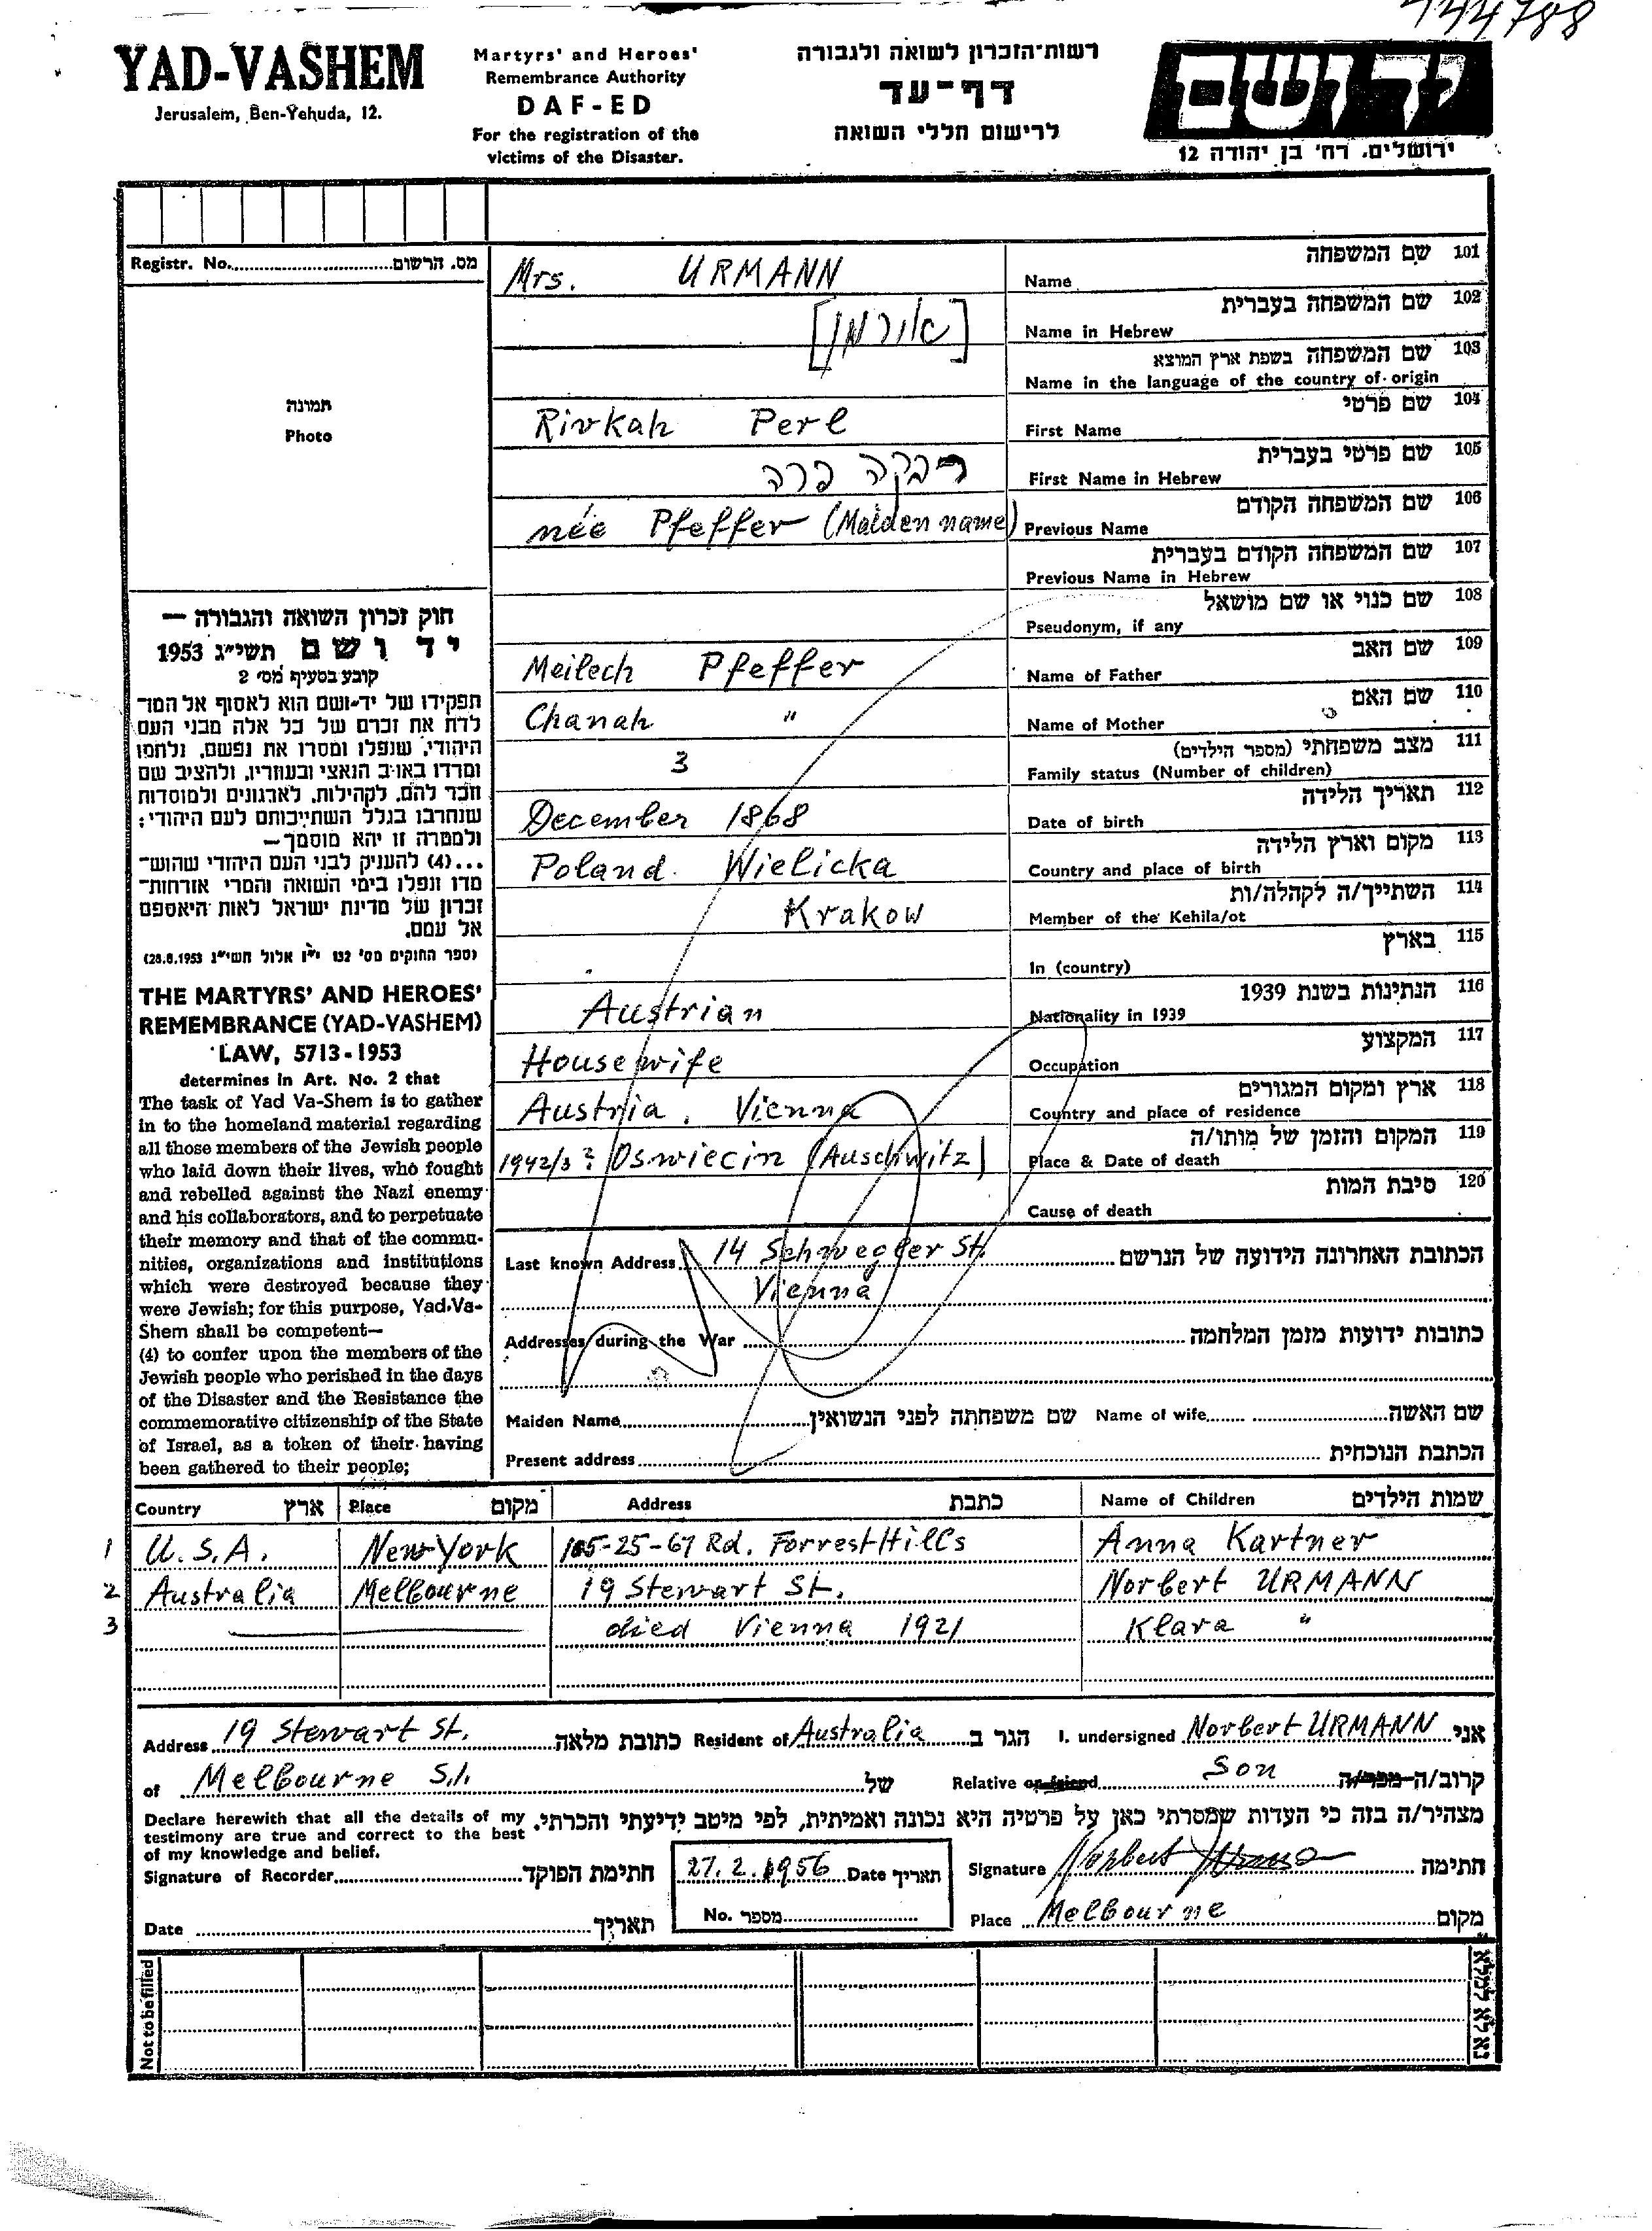 744788
YAD-VASHEM
Jerusalem, Ben-Yehuda, 12.
Martyrs' and Heroes'
Remembrance Authority
DAF-ED
For the registration of the
victims of the Disaster.
רשות־הזכרון לשואה ולגבורה
דף־עד
לרישום חללי השואה
יד ושם
ירושלים, רח' בן יהודה 12
Registr. No. מס. הרשום
תמונה
Photo
חוק זכרון השואה והגבורה —
יד ושם תשי״ג 1953
קובע בסעיף מס' 2
תפקידו של יד־ושם הוא לאסוף אל המו־
לדת את זכרם של כל אלה מבני העם
היהודי, שנפלו ומסרו את נפשם, נלחמו
ומרדו באויב הנאצי ובעוזריו, ולהציב שם
וזכר להם, לקהילות, לארגונים ולמוסדות
שנחרבו בגלל השתייכותם לעם היהודי;
ולמטרה זו יהא מוסמך—
...(4) להעניק לבני העם היהודי שהוש־
מדו ונפלו בימי השואה והמרי אזרחות־
זכרון של מדינת ישראל לאות היאספם
אל עמם.
(ספר החוקים מס' 132 י״ז אלול תשי״ג 28.8.1953)
THE MARTYRS' AND HEROES'
REMEMBRANCE (YAD-VASHEM)
LAW, 5713-1953
determines in Art. No. 2 that
The task of Yad Va-Shem is to gather
in to the homeland material regarding
all those members of the Jewish people
who laid down their lives, who fought
and rebelled against the Nazi enemy
and his collaborators, and to perpetuate
their memory and that of the commu-
nities, organizations and institutions
which were destroyed because they
were Jewish; for this purpose, Yad-Va-
Shem shall be competent—
(4) to confer upon the members of the
Jewish people who perished in the days
of the Disaster and the Resistance the
commemorative citizenship of the State
of Israel, as a token of their having
been gathered to their people;
Mrs. URMANN Name שם המשפחה 101
[אורמן] Name in Hebrew שם המשפחה בעברית 102
Name in the language of the country of origin שם המשפחה בשפת ארץ המוצא 103
Rivkah Perl First Name שם פרטי 104
רבקה פרה First Name in Hebrew שם פרטי בעברית 105
née Pfeffer (Maiden name) Previous Name שם המשפחה הקודם 106
Previous Name in Hebrew שם המשפחה הקודם בעברית 107
Pseudonym, if any שם כנוי או שם מושאל 108
Meilech Pfeffer Name of Father שם האב 109
Chanah " Name of Mother שם האם 110
3 Family status (Number of children) מצב משפחתי (מספר הילדים) 111
December 1868 Date of birth תאריך הלידה 112
Poland. Wielicka Country and place of birth מקום וארץ הלידה 113
Krakow Member of the Kehila/ot השתייך/ה לקהלה/ות 114
In (country) בארץ 115
Austrian Nationality in 1939 הנתינות בשנת 1939 116
Housewife Occupation המקצוע 117
Austria, Vienna Country and place of residence ארץ ומקום המגורים 118
1942/3? Oswiecin (Auschwitz) Place & Date of death המקום והזמן של מותו/ה 119
Cause of death סיבת המות 120
Last known Address 14 Schwegler St. הכתובת האחרונה הידועה של הנרשם
Vienna
Addresses during the War כתובות ידועות מזמן המלחמה
Maiden Name שם משפחתה לפני הנשואין Name of wife שם האשה
Present address הכתבת הנוכחית
Country ארץ Place מקום Address כתבת Name of Children שמות הילדים
1 U.S.A. New York 105-25-67 Rd. Forrest Hills Anna Kartner
2 Australia Melbourne 19 Stewart St. Norbert URMANN
3 died Vienna 1921 Klara "
Address 19 Stewart St. כתובת מלאה Resident of Australia הגר ב I. undersigned Norbert URMANN אני
of Melbourne S.1. של Relative or friend Son קרוב/ה-מכר/ה
Declare herewith that all the details of my
testimony are true and correct to the best
of my knowledge and belief.
מצהיר/ה בזה כי העדות שמסרתי כאן על פרטיה היא נכונה ואמיתית, לפי מיטב ידיעתי והכרתי.
Signature of Recorder חתימת הפוקד 27.2.1956 Date תאריך Signature Norbert Urmann חתימה
Date תאריך No. מספר Place Melbourne מקום
Not to be filled
נא לא למלא